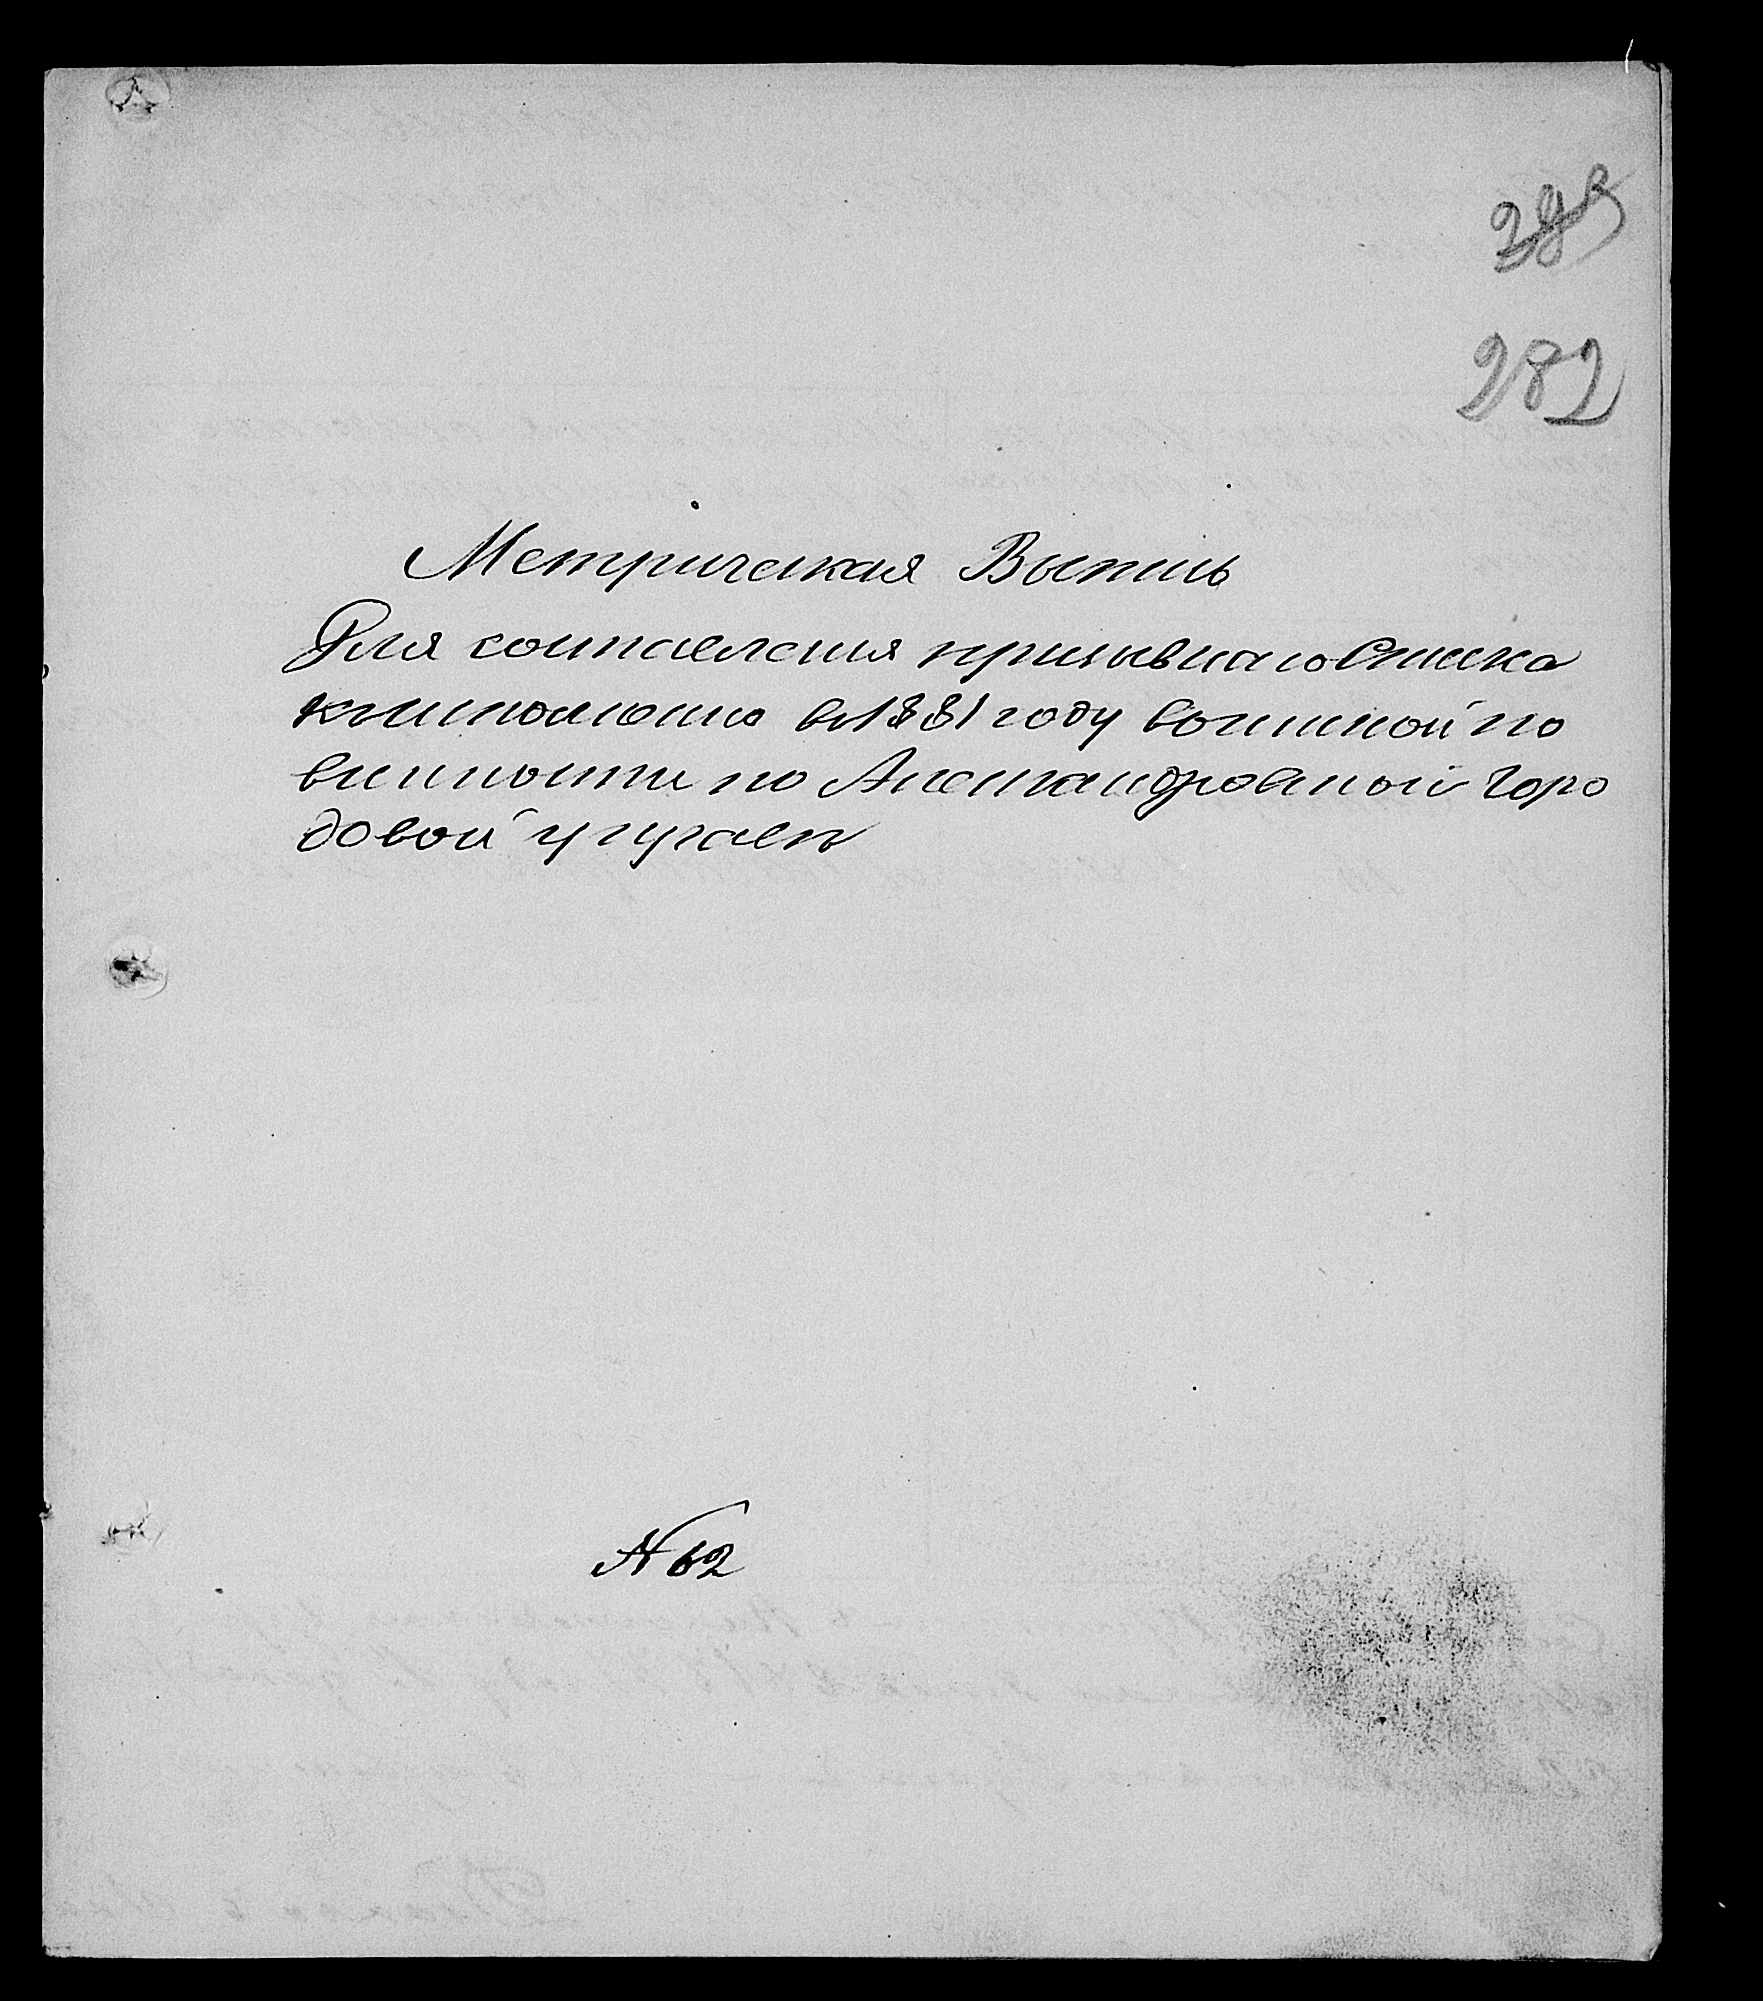 283
282
Метрическая Выпись
Для составления призывнаго Списка
к исполнению в 1881 году воинской по
винности по Александровской Горо
довой управе
№ 62